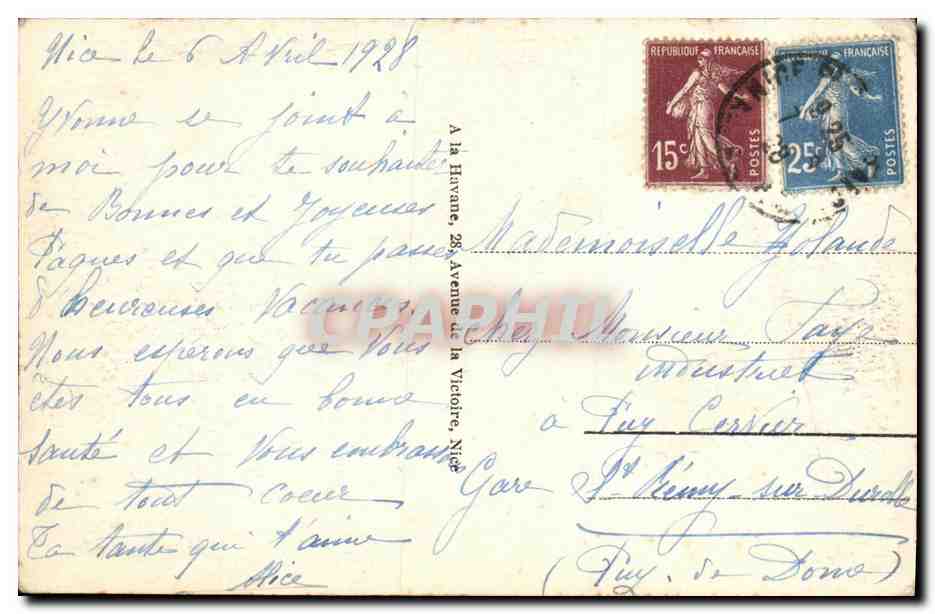 Nice le 6 Avril 1928
Yvonne se joint à
moi pour te souhaiter
de Bonnes et Joyeuses
Pâques et que tu passes
d'heureuses Vacances.
Nous esperons que Vous
êtes tous en bonne
santé et Vous embrassons
de tout coeur
Ta tante qui t'aime
Alice
A la Havane, 28, Avenue de la Victoire, Nice
REPUBLIQUE FRANÇAISE
15c
POSTES
FRANÇAISE
25c
POSTES
Mademoiselle Yolande
chez Monsieur
industriel
à Puy
Gare St Rémy-sur-Durolle
(Puy. de Dome)
CPARAMA